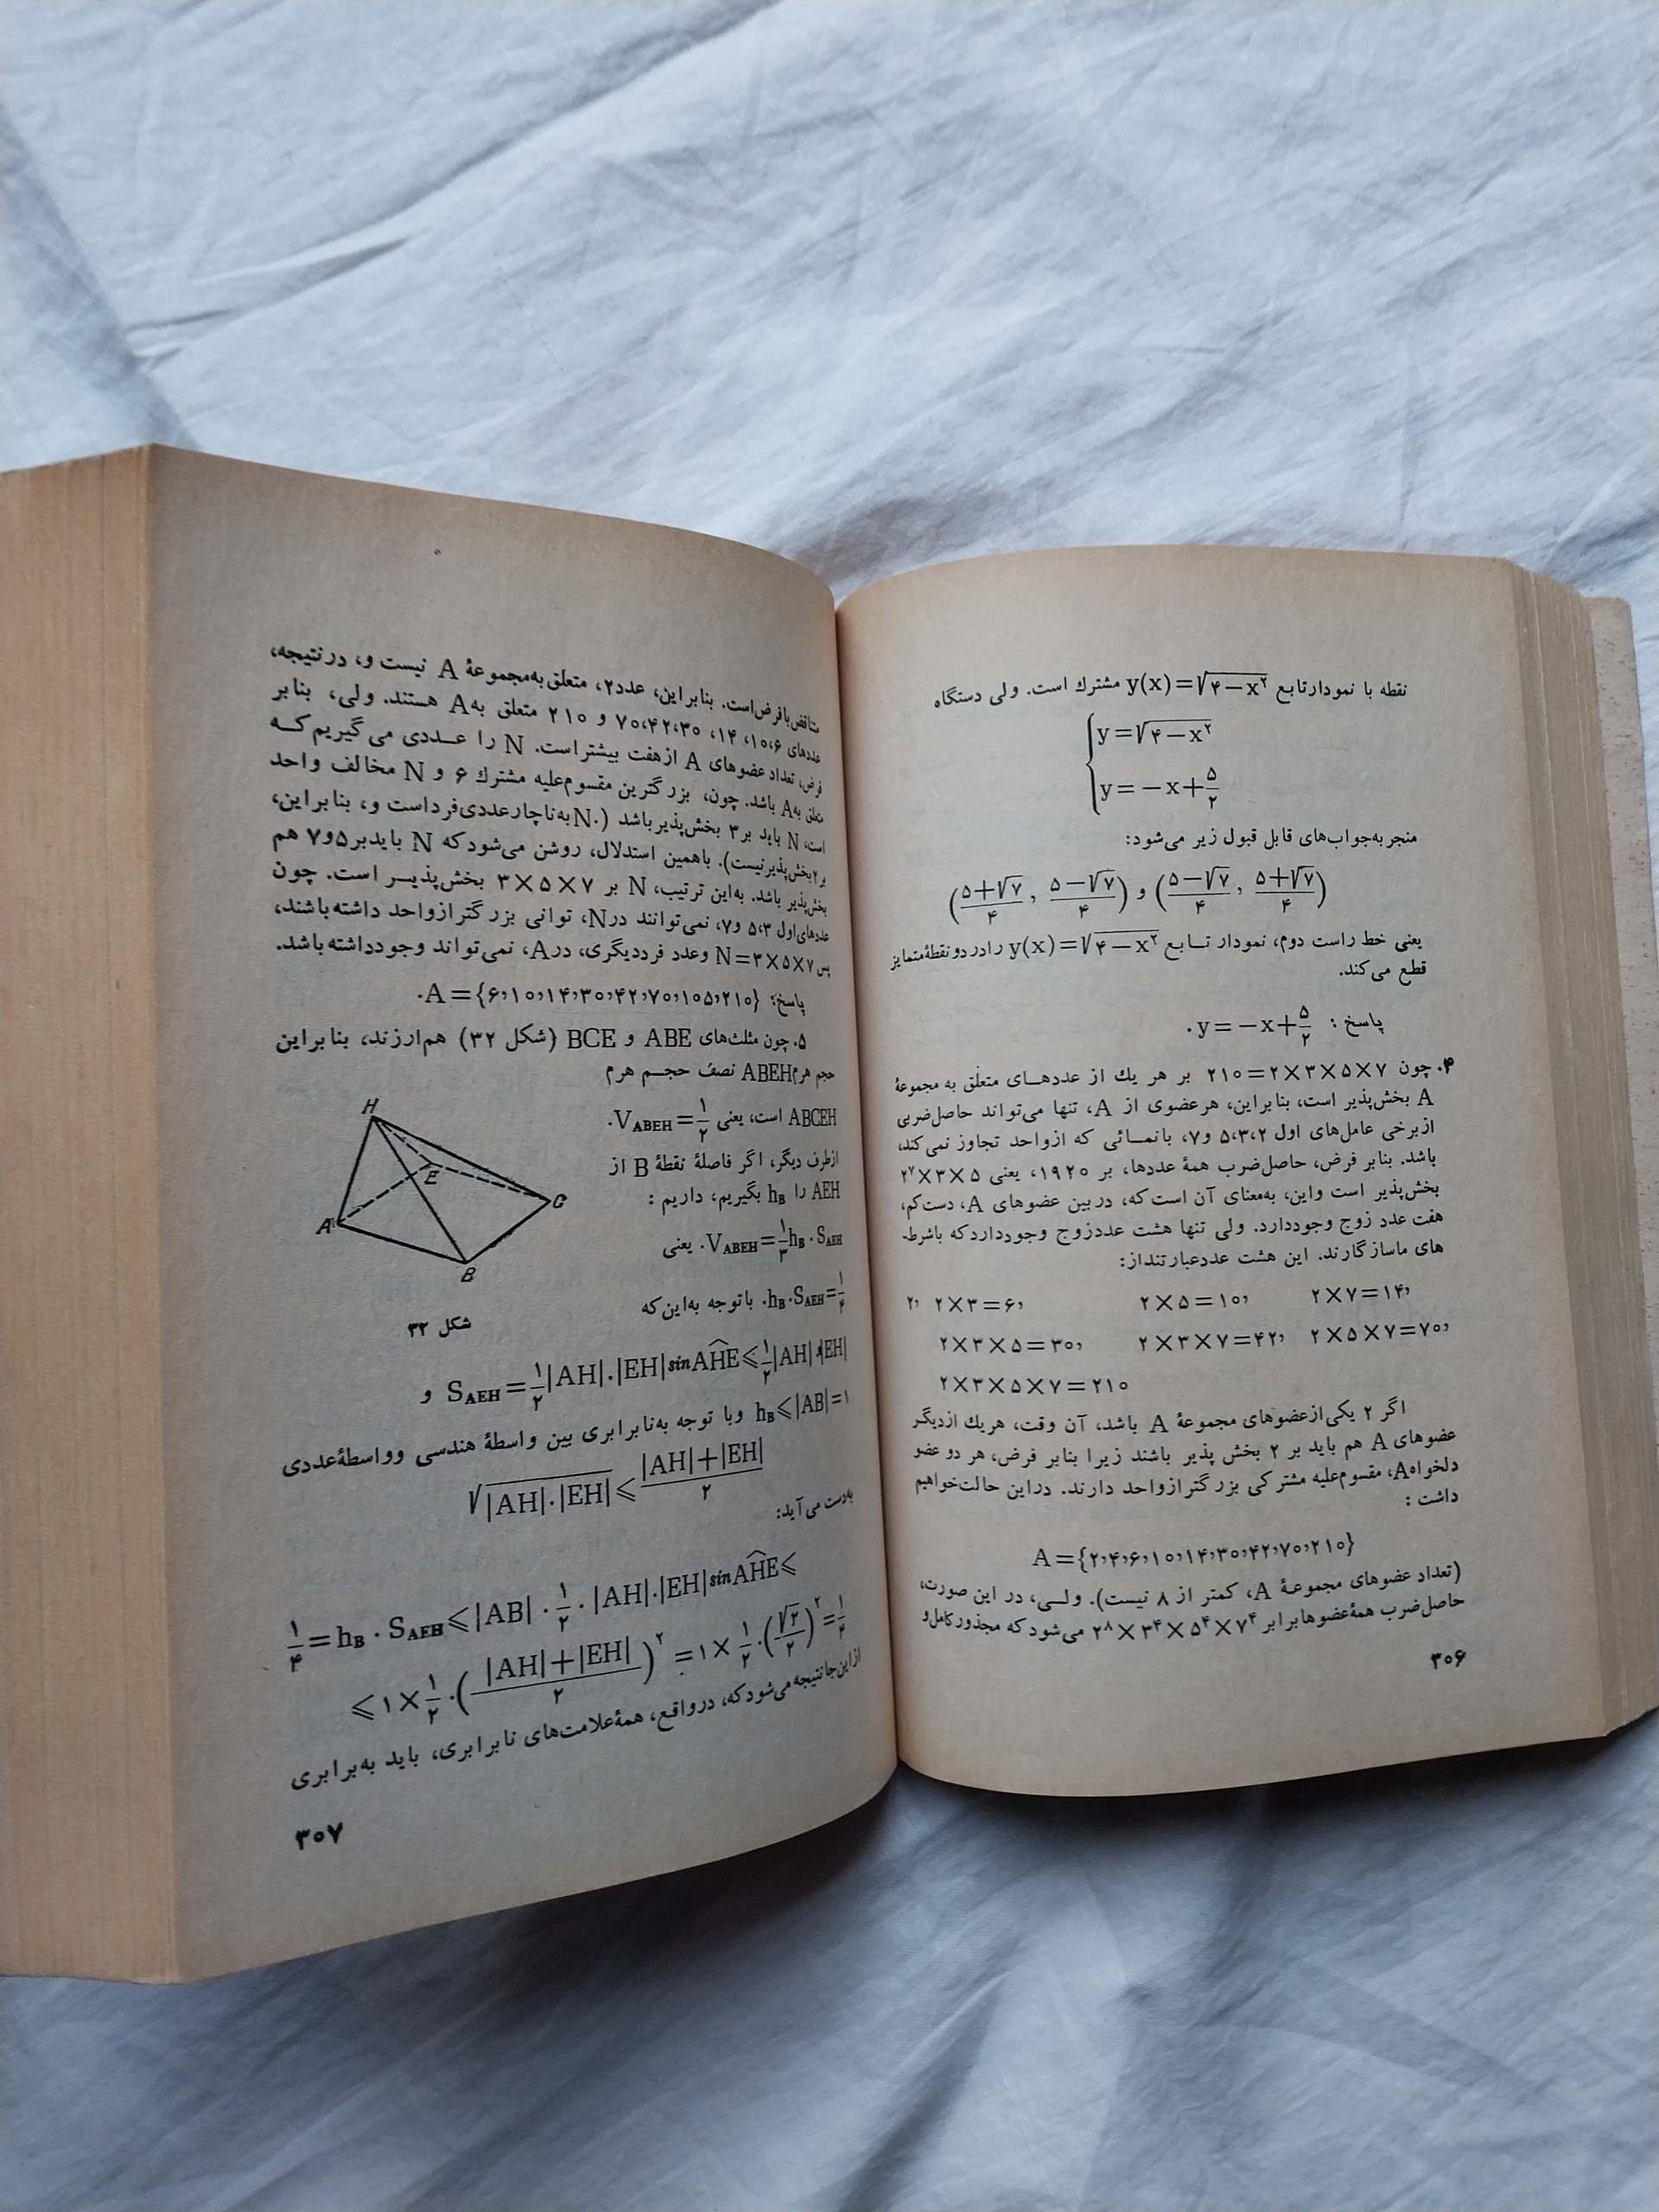 نقطه با نمودارتابع y(x)=√۴−x۲ مشترك است. ولی دستگاه
y=√۴−x۲
y=−x+۵/۲
منجر به‌جواب‌های قابل قبول زیر می‌شود:
(۵−√۷/۴, ۵+√۷/۴) و (۵+√۷/۴, ۵−√۷/۴)
یعنی خط راست دوم، نمودار تـــابع y(x)=√۴−x۲ رادردونقطهٔ‌متمایز
قطع می‌کند.
پاسخ : y=−x+۵/۲.
۴. چون ۲×۳×۵×۷=۲۱۰ بر هر یك از عددهــای متعلّق به مجموعهٔ
A بخش‌پذیر است، بنابراین، هرعضوی از A، تنها می‌تواند حاصل‌ضربی
ازبرخی عامل‌های اول ۲،۳،۵ و۷، بانمــائی که ازواحد تجاوز نمی‌کند،
باشد. بنابر فرض، حاصل‌ضرب همهٔ عددها، بر ۱۹۲۰، یعنی ۲۷×۳×۵
بخش‌پذیر است واین، به‌معنای آن است‌که، دربین عضوهای A، دست‌کم،
هفت عدد زوج وجوددارد. ولی تنها هشت عددزوج وجودداردکه باشرط‌-
های ماسازگارند. این هشت عددعبارتنداز:
۲, ۲×۳=۶, ۲×۵=۱۰, ۲×۷=۱۴,
۲×۳×۵=۳۰, ۲×۳×۷=۴۲, ۲×۵×۷=۷۰,
۲×۳×۵×۷=۲۱۰
اگر ۲ یکی‌ازعضوهای مجموعهٔ A باشد، آن وقت، هریك ازدیگر
عضوهای A هم باید بر ۲ بخش پذیر باشند زیرا بنابر فرض، هر دو عضو
دلخواهA، مقسوم‌علیه مشترکی بزرگترازواحد دارند. دراین حالت‌خواهیم
داشت :
A={۲,۴,۶,۱۰,۱۴,۳۰,۴۲,۷۰,۲۱۰}
(تعداد عضوهای مجموعهٔ A، کمتر از ۸ نیست). ولـی، در این صورت،
حاصل‌ضرب همهٔ‌عضوهابرابر ۲۸×۳۴×۵۴×۷۴ می‌شود که مجذورکامل‌و
۳۰۶
متناقض‌بافرض‌است. بنابراین، عدد۲، متعلق به‌مجموعهٔ A نیست و، درنتیجه،
عددهای ۶،۱۰، ۱۴، ۳۰،۴۲،۷۰ و ۲۱۰ متعلق به‌A هستند. ولی، بنابر
فرض، تعداد عضوهای A ازهفت بیشتراست. N را عــددی می‌گیریم کــه
متعلق به‌A باشد. چون، بزرگترین مقسوم‌علیه مشترك ۶ و N مخالف واحد
است، N باید بر۳ بخش‌پذیرباشد (.N به‌ناچارعددی‌فرداست و، بنابراین،
بر۲بخش‌پذیرنیست). باهمین استدلال، روشن می‌شودکه N بایدبر۵و۷ هم
بخش‌پذیر باشد. به‌این ترتیب، N بر ۳×۵×۷ بخش‌پذیــر است. چون
عددهای‌اول ۵،۳ و۷، نمی‌توانند درN، توانی بزرگترازواحد داشته‌باشند،
پس N=۳×۵×۷ وعدد فرددیگری، درA، نمی‌تواند وجودداشته‌باشد.
پاسخ: A={۶,۱۰,۱۴,۳۰,۴۲,۷۰,۱۰۵,۲۱۰}.
۵. چون مثلث‌های ABE و BCE (شکل ۳۲) هم‌ارزند، بنابراین
حجم هرمABEH نصف حجــم هرم
ABCEH است، یعنی VABEH=۱/۲.
ازطرف دیگر، اگر فاصلهٔ نقطهٔ B از
AEH را hB بگیریم، داریم :
VABEH=۱/۳hB.SAEH. یعنی
hB.SAEH=۱/۴. باتوجه به‌این‌که
H
E
A
C
B
شکل ۳۲
SAEH=۱/۲|AH|.|EH|sinAĤE⩽۱/۲|AH|.|EH| و
hB⩽|AB|=۱ وبا توجه به‌نابرابری بین واسطهٔ هندسی وواسطهٔ‌عددی
√|AH|.|EH|⩽|AH|+|EH|/۲
به‌دست می‌آید:
۱/۴=hB.SAEH⩽|AB|.۱/۲.|AH|.|EH|sinAĤE⩽
⩽۱×۱/۲.(|AH|+|EH|/۲)۲=۱×۱/۲.(√۲/۲)۲=۱/۴
ازاین‌جانتیجه‌می‌شودکه، درواقع، همهٔ‌علامت‌های نابرابری، باید به‌برابری
۳۰۷